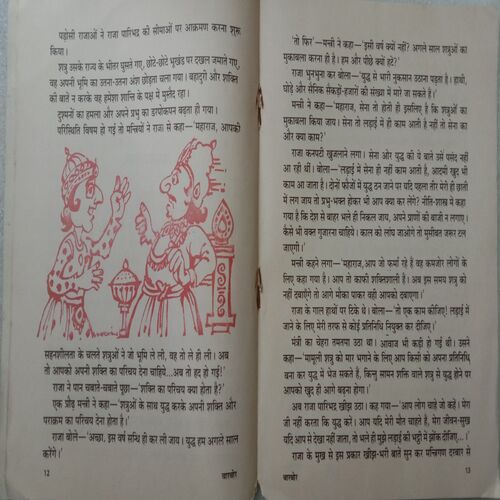 पड़ोसी राजाओं ने राजा पारिभद्र की सीमाओं पर आक्रमण करना शुरू
किया।
शत्रु उसके राज्य के भीतर घुसते गए, छोटे-छोटे भूखंड पर दखल जमाते गए,
वह अपनी भूमि का उतना-उतना अंश छोड़ता चला गया। बहादुरी और शक्ति
की बातें न करके वह हमेशा शान्ति के पक्ष में मुस्तैद रहा।
दुश्मनों का हमला और अपने प्रभु का डरपोकपन बढ़ता ही गया।
परिस्थिति विषम हो गई तो मन्त्रियों ने राजा से कहा—'महाराज, आपकी
सहनशीलता के चलते शत्रुओं ने जो भूमि ले ली, वह तो ले ही ली। अब
तो आपको अपनी शक्ति का परिचय देना चाहिये...अब तो हद हो गई!'
राजा ने पान चबाते-चबाते पूछा—'शक्ति का परिचय क्या होता है?'
एक प्रौढ़ मन्त्री ने कहा—'शत्रुओं के साथ युद्ध करके अपनी शक्ति और
पराक्रम का परिचय देना होता है।'
राजा बोले—'अच्छा. इस वर्ष सन्धि ही कर ली जाय। युद्ध हम अगले साल
करेंगे।'
12
बारबोर
'तो फिर'—मन्त्री ने कहा—'इसी वर्ष क्यों नहीं? अगले साल शत्रुओं का
मुकाबला करना ही है। हम और पीछे क्यों हटें?'
राजा भुनभुना कर बोला—'युद्ध में भारी नुकसान उठाना पड़ता है। हाथी,
घोड़े और सैनिक सैकड़ों-हजारों की संख्या में मारे जा सकते हैं।'
मन्त्री ने कहा—'महाराज, सेना तो होती ही इसलिए है कि शत्रुओं का
मुकाबला किया जाय। सेना तो लड़ाई में ही काम आती है नहीं तो सेना का
और क्या काम?'
राजा कनपटी खुजलाने लगा। सेना और युद्ध की ये बातें उसे पसंद नहीं
आ रही थीं। बोला—'लड़ाई में सेना ही नहीं काम आती है, आदमी खुद भी
काम आ जाता है। दोनों फौजों में युद्ध ठन जाने पर यदि पहला तीर मेरे ही छाती
में लग जाय तो प्रभु-भक्त होकर भी आप क्या कर लेंगे? नीति-शास्त्र में कहा
गया है कि देश से बाहर भले ही निकल जाय, अपने प्राणों की बाजी न लगाएं।
कैसे भी वक्त गुजारना चाहिये। काल को लांघ जाओगे तो मुसीबत जरूर टल
जाएगी।'
मन्त्री कहने लगा—'महाराज, आप जो फर्मा रहे हैं वह कमजोर लोगों के
लिए कहा गया है। आप तो काफी शक्तिशाली हैं। अब इस समय शत्रु को
नहीं दबाएँगे तो आगे मौका पाकर वही आपको दबाएगा।'
राजा के गाल हाथों पर टिके थे। बोला—'तो एक काम कीजिए! लड़ाई में
जाने के लिए मेरी तरफ से कोई प्रतिनिधि नियुक्त कर दीजिए।'
मंत्री का चेहरा तमतमा उठा था। आवाज भी कड़ी हो गई थी। उसने
कहा—'मामूली शत्रु को मार भगाने के लिए आप किसी को अपना प्रतिनिधि
बना कर युद्ध में भेज सकते हैं, किन्तु सामन शक्ति वाले शत्रु से युद्ध होने पर
आपको खुद ही आगे बढ़ना होगा।'
अब राजा पारिभद्र खीझ उठा। कह गया—'आप लोग जाहे जो कहें। मेरा
जी नहीं करता कि युद्ध करूँ। आप यदि मेरी मौत चाहते हैं, मेरा जीवन-सुख
यदि आप से देखा नहीं जाता, तो भले ही मुझे लड़ाई की भट्ठी में झोंक दीजिए...।'
राजा के मुख से इस प्रकार खीझ-भरी बातें सुन कर मन्त्रिगण दरबार से
बारबोर
13